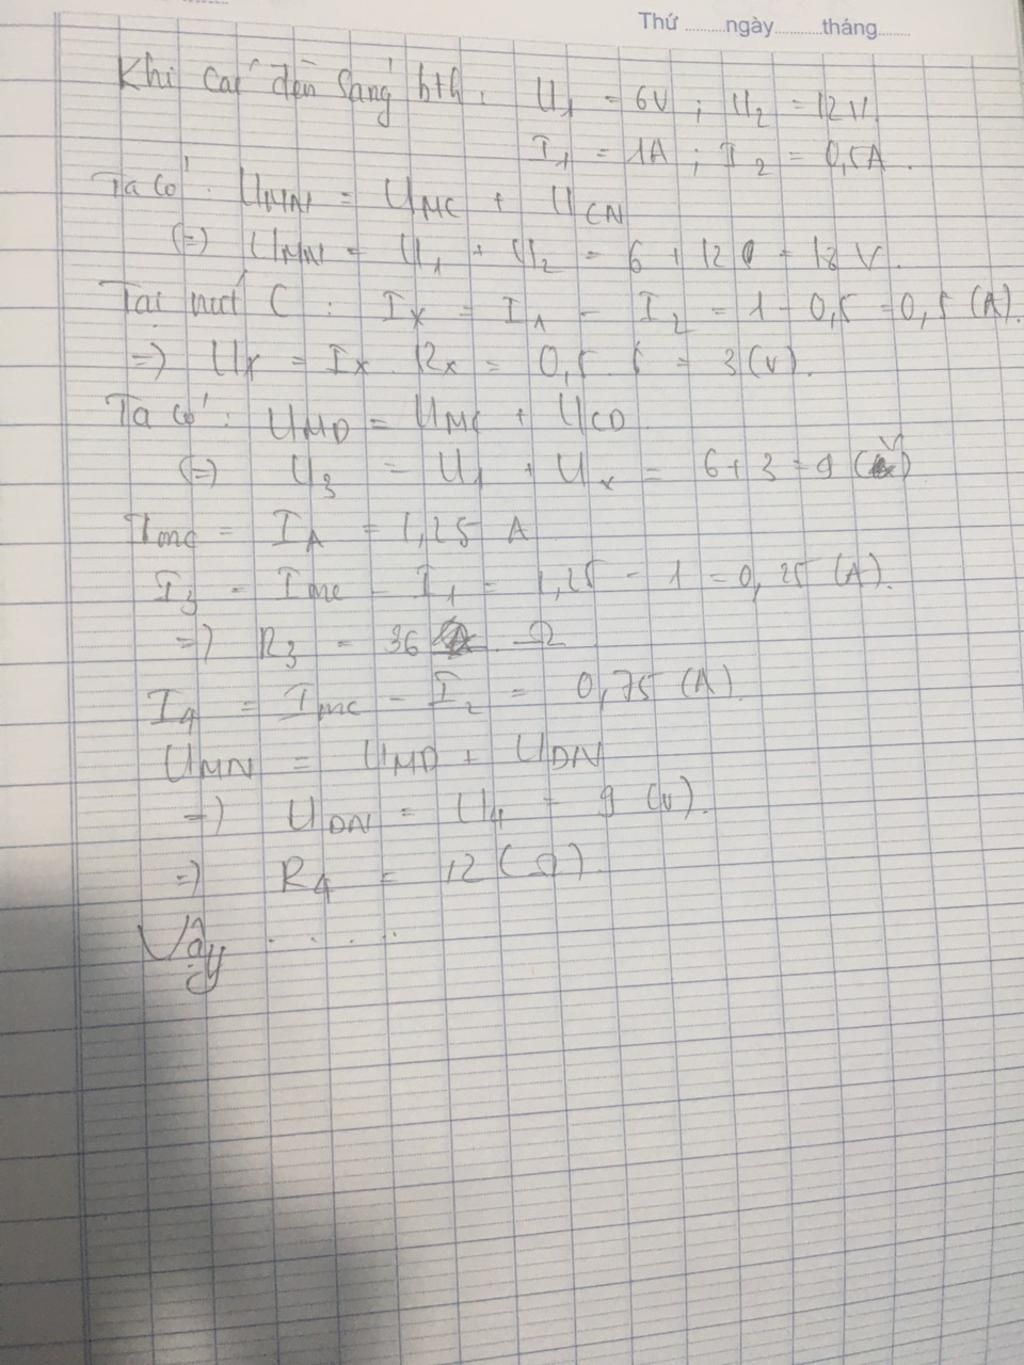 Thứ ........ngày..........tháng.......
Khi các đèn sáng bth : U1 = 6V ; U2 = 12V
I1 = 1A ; I2 = 0,5A .
Ta có : UMN = UMC + UCN
(=) UMN = U1 + U2 = 6 + 12 = 18 V.
Tại nút C : Ix = I1 - I2 = 1 - 0,5 = 0,5 (A).
=) Ux = Ix . Rx = 0,5 . 6 = 3 (V).
Ta có : UMD = UMC + UCD
(=) U3 = U1 + Ux = 6 + 3 = 9 (V)
Imc = IA = 1,25 A
I3 = Imc - I1 = 1,25 - 1 = 0,25 (A).
=) R3 = 36 Ω
I4 = Imc - I2 = 0,75 (A).
UMN = UMD + UDN
=) UDN = U4 = 9 (V).
=) R4 = 12 (Ω).
Vậy . . . . .